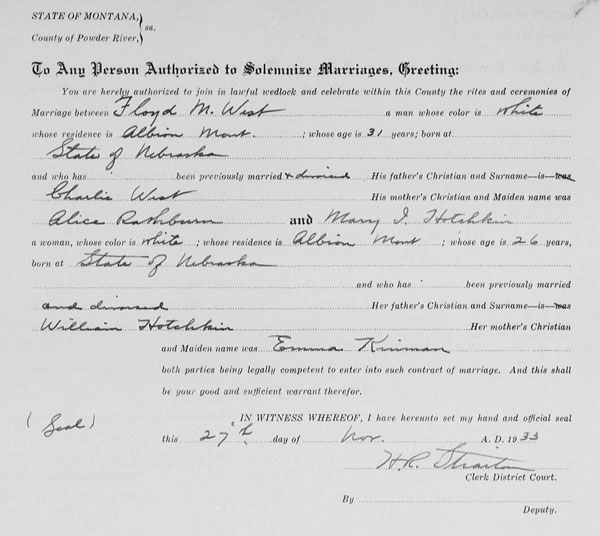 STATE OF MONTANA,
ss.
County of Powder River,
To Any Person Authorized to Solemnize Marriages, Greeting:
You are hereby authorized to join in lawful wedlock and celebrate within this County the rites and ceremonies of
Marriage between Floyd M. West a man whose color is white
whose residence is Albion Mont. ; whose age is 31 years; born at
State of Nebraska
and who has been previously married & divorced His father's Christian and Surname—is—was
Charlie West His mother's Christian and Maiden name was
Alice Rathburn and Mary I. Hotchkin
a woman, whose color is white ; whose residence is Albion Mont ; whose age is 26 years,
born at State of Nebraska
and who has been previously married
and divorced Her father's Christian and Surname—is—was
William Hotchkin Her mother's Christian
and Maiden name was Emma Kinman
both parties being legally competent to enter into such contract of marriage. And this shall
be your good and sufficient warrant therefor.
(Seal) IN WITNESS WHEREOF, I have hereunto set my hand and official seal
this 27th day of Nov. A. D. 1933
H.R. Straiton
Clerk District Court.
By
Deputy.